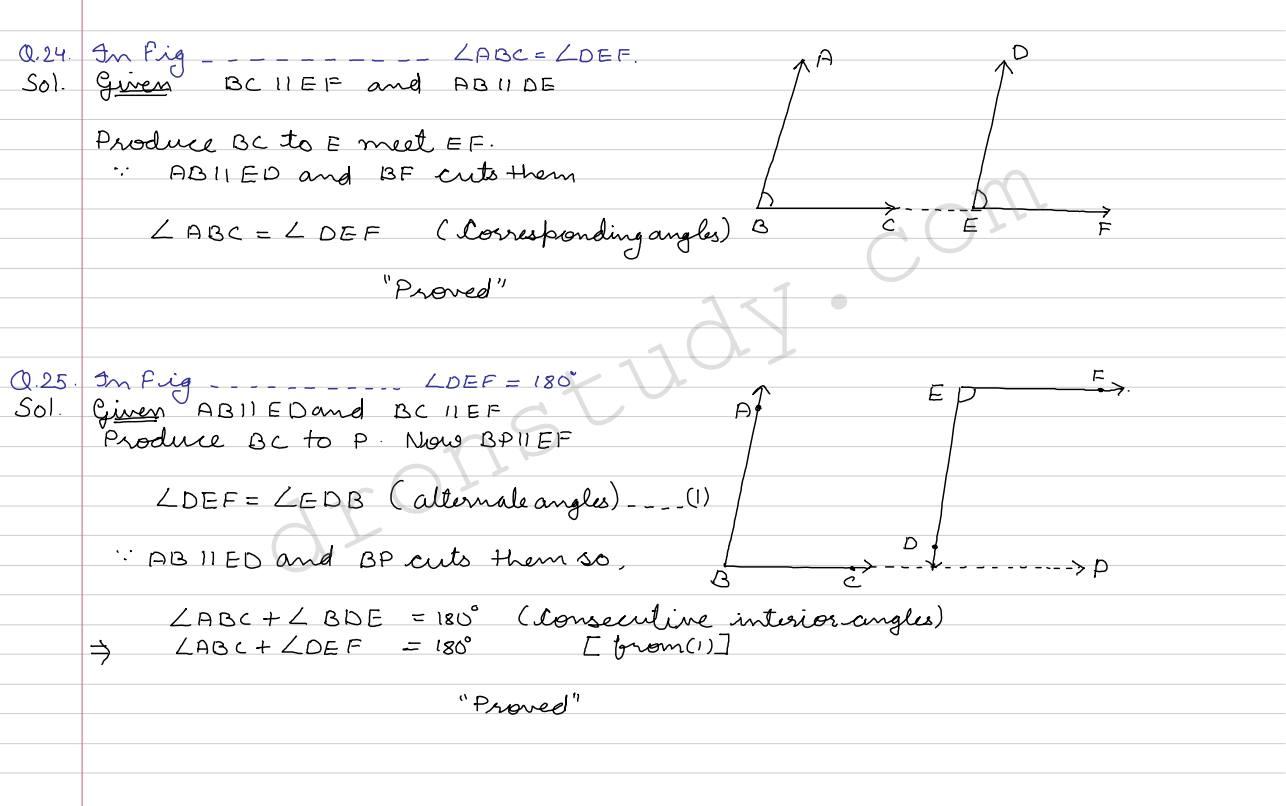 Q.24. In Fig - - - - - - - - - - - ∠ABC = ∠DEF.
Sol. Given BC || EF and AB || DE
Produce BC to E meet EF.
∵ AB || ED and BF cuts them
∠ABC = ∠DEF (Corresponding angles)
"Proved"
A
D
B
C
E
F
Q.25. In Fig - - - - - - - - - - - - ∠DEF = 180°
Sol. Given AB || ED and BC || EF
Produce BC to P. Now BP || EF
∠DEF = ∠EDB (alternate angles) - - - - (1)
∵ AB || ED and BP cuts them so,
∠ABC + ∠BDE = 180° (Consecutive interior angles)
⇒ ∠ABC + ∠DEF = 180° [from (1)]
"Proved"
E
F
A
D
B
C
P
dronstudy.com